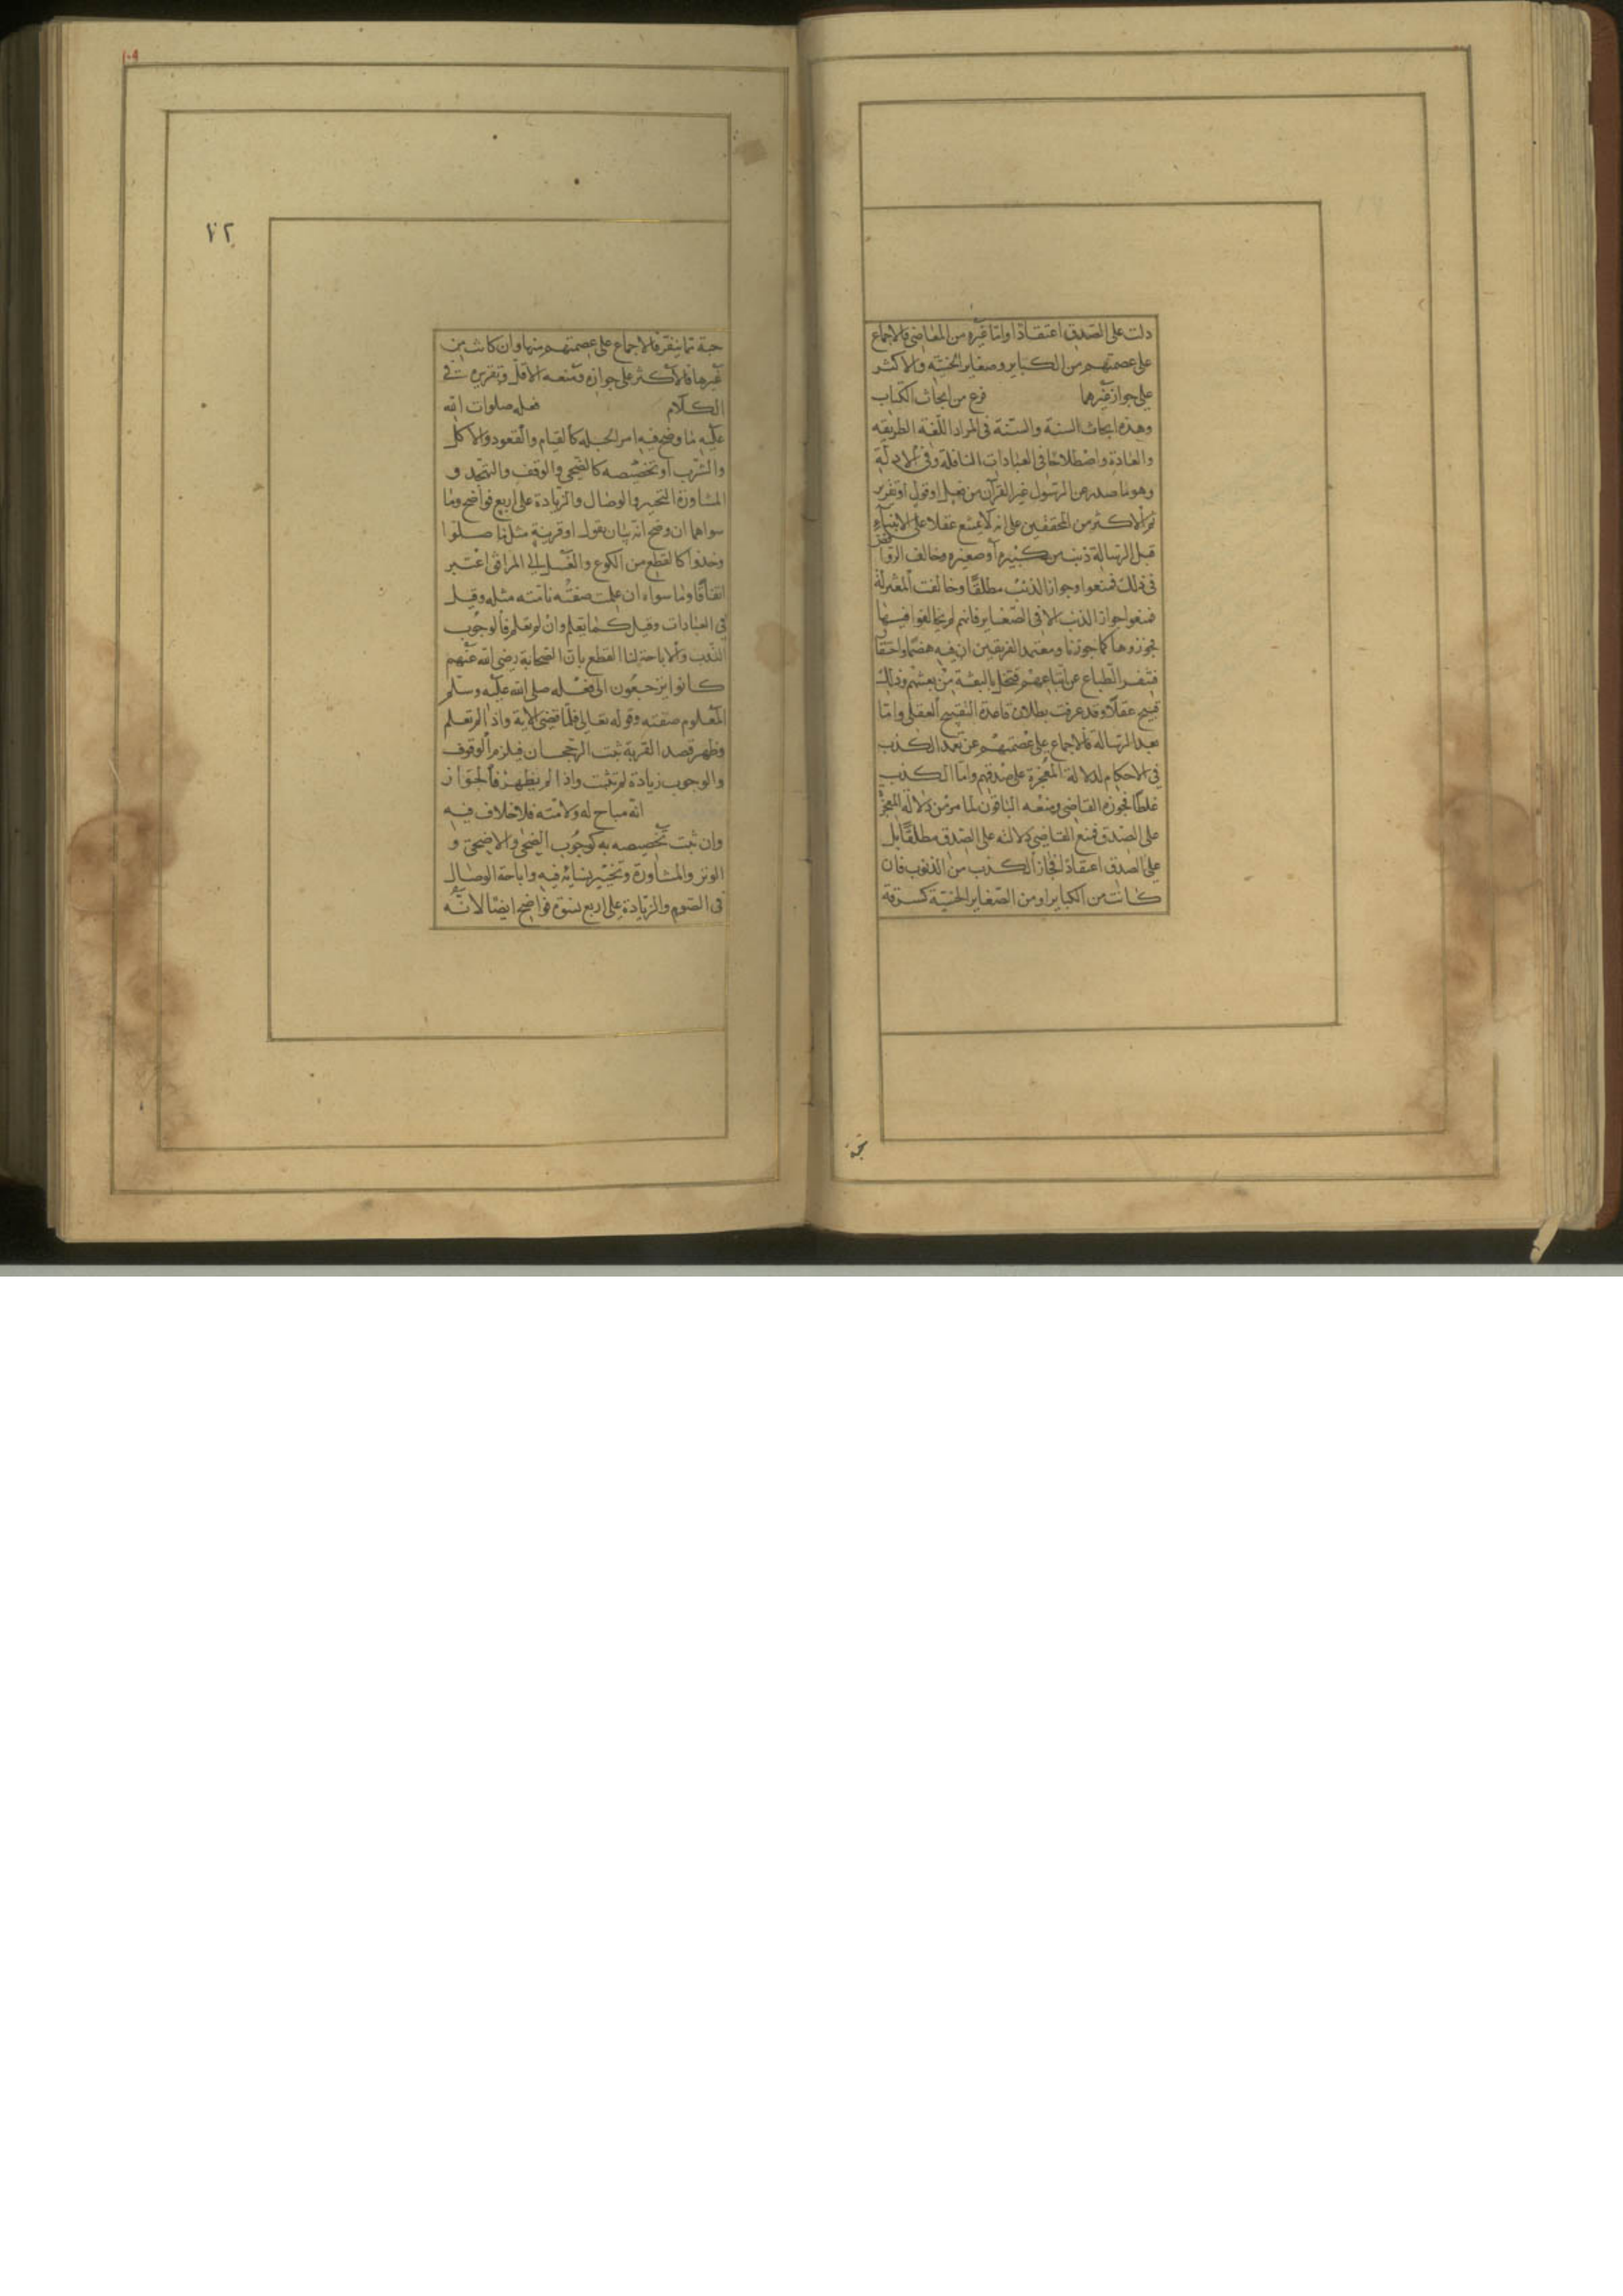 دلت على الصدق اعتقادا واما غيره من المعاصي فالاجماع
على عصمتهم من الكباير وصغاير الخسة والاكثر
على جواز غيرهما فرغ من ابحاث الكتاب
وهذه ابحاث السنة والسنة في المراد اللغة الطريقه
والعادة واصطلاحا في العبادات النافلة وفي الادلة
وهو ما صدر عن الرسول غير القرآن من فعل او قول او تقرير
ثم الاكثر من المحققين على انه لا يمتنع عقلا على الانبياء
قبل الرسالة ذنب من كبيره او صغيره وخالف الروا
فض
في ذلك فمنعوا وجواز الذنب مطلقا وخالفت المعتزلة
فمنعوا جواز الذنب الا في الصغاير فانهم لم يخالفوا فيها
فجوزوها كما جوزنا ومعتمد الفريقين ان فيه هضما واحتقا
فتنفر الطباع عن اتباعهم فتخل بالبعثة من بعثهم وذلك
قبيح عقلا وقد عرفت بطلان قاعدة التقبيح العقلي واما
بعد الرسالة فالاجماع على عصمتهم عن تعمد الكذب
في الاحكام لدلالة المعجزة على صدقهم واما الكذب
غلطا فجوزه القاضي ومنعه الباقون لما مر من دلالة المعجزة
على الصدق فمنع القاضي دلالته على الصدق مطلقا بل
على الصدق اعتقادا فجاز الكذب من الذنوب فان
كانت من الكباير او من الصغاير الخسية كسرقة
حبة
١٠٩
٧٢
حبة مما ينفر فالاجماع على عصمتهم منها وان كانت من
غيرها فالاكثر على جوازه ومنعه الاقل وتقريره في
الكلام فعله صلوات الله
عليه ما وضح فيه امر الجبله كالقيام والقعود والاكل
والشرب او تخصيصه كالضحى والوقف والتهجد و
المشاورة التخيير والوصال والزيادة على اربع فواضح وما
سواهما ان وضح انه بيان بقول او قرينة مثل ما صلوا
وخذوا كالقطع من الكوع والغسل الى المرافق اعتبر
اتفاقا وما سواه ان علمت صفته فامته مثله وقيل
في العبادات وقيل كما يعلم وان لم تعلم فالوجوب
الندب والاباحة لنا القطع بان الصحابة رضي الله عنهم
كانوا يرجعون الى فعله صلى الله عليه وسلم
المعلوم صفته وقوله تعالى فلما قضى الاية واذا لم تعلم
وظهر قصد القربة ثبت الرجحان فلزم الوقوف
والوجوب زيادة لم تثبت واذا لم يظهر فالجواز
انه مباح له ولامته فلا خلاف فيه
وان ثبت تخصيصه به كوجوب الضحى والاضحى و
الوتر والمشاورة وتخيير نسائه فيه واباحة الوصال
في الصوم والزيادة على اربع نسوة فواضح ايضا لانه